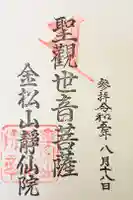 参拝令和五年八月十八日
聖観世音菩薩
金松山静仙院